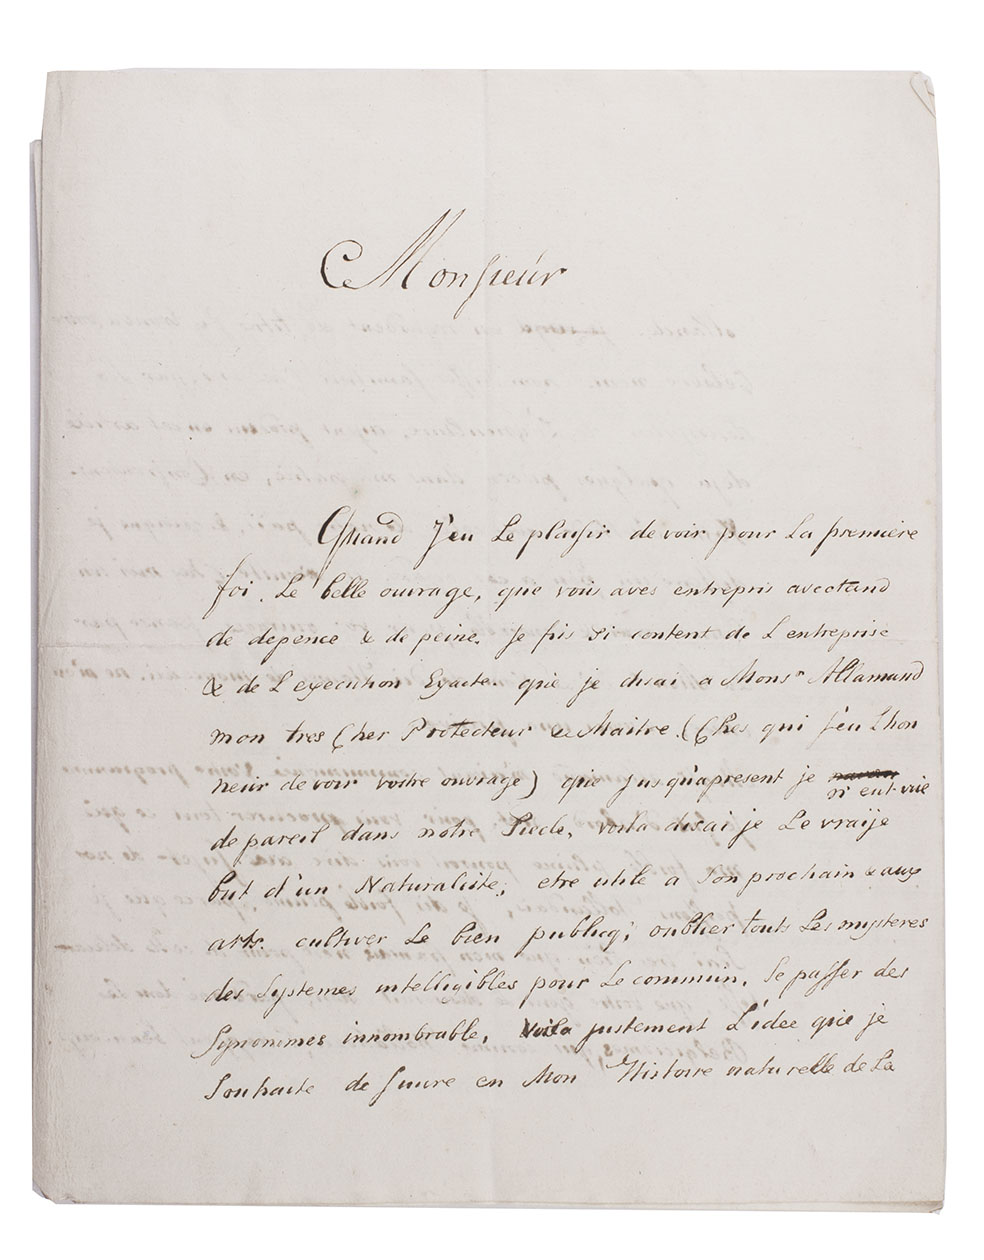 Monsieur
Quand J'eu Le plaisir de voir pour La première
foi. Le belle ouvrage, que vous aves entrepris avectand
de depence & de peine. Je fus si content de L entreprise
& de L execution Exacte. que je disai a Monsr Allamand
mon tres Cher Protecteur & Maitre. (Ches qui J'eu L'hon
neur de voir votre ouvrage) que jusqu'apresent je
n' eut vúe
de pareil dans notre Siecle, voila disai je Le vraije
but d'un Naturaliste, etre utile a Son prochain & aux
arts. cultiver Le bien publicq; oublier touts Les mysteres
des Systemes intelligibles pour Le commun, Se passer des
Synonimes innombrable, voila justement L'idee que je
Souhaite de Suivre en Mon Histoire naturelle de La